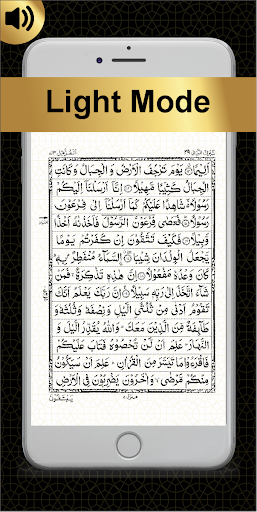 Light Mode
تَبٰرَكَ الَّذِیْ ٢٩ اَلْمُزَّمِّل ٧٣
اَلِيْمًا ۝ يَوْمَ تَرْجُفُ الْاَرْضُ وَ الْجِبَالُ وَكَانَتِ
الْجِبَالُ كَثِيْبًا مَّهِيْلًا ۝ اِنَّآ اَرْسَلْنَآ اِلَيْكُمْ
رَسُوْلًا ۙ شَاهِدًا عَلَيْكُمْ كَمَآ اَرْسَلْنَآ اِلٰى فِرْعَوْنَ
رَسُوْلًا ۝ فَعَصٰى فِرْعَوْنُ الرَّسُوْلَ فَاَخَذْنٰهُ اَخْذًا
وَّبِيْلًا ۝ فَكَيْفَ تَتَّقُوْنَ اِنْ كَفَرْتُمْ يَوْمًا
يَّجْعَلُ الْوِلْدَانَ شِيْبَا ۝ السَّمَآءُ مُنْفَطِرٌۢ بِهٖ ؕ
كَانَ وَعْدُهٗ مَفْعُوْلًا ۝ اِنَّ هٰذِهٖ تَذْكِرَةٌ ۚ فَمَنْ
شَآءَ اتَّخَذَ اِلٰى رَبِّهٖ سَبِيْلًا ۝ اِنَّ رَبَّكَ يَعْلَمُ اَنَّكَ
تَقُوْمُ اَدْنٰى مِنْ ثُلُثَيِ الَّيْلِ وَ نِصْفَهٗ وَثُلُثَهٗ وَ
طَآئِفَةٌ مِّنَ الَّذِيْنَ مَعَكَ ؕ وَاللّٰهُ يُقَدِّرُ الَّيْلَ وَ
النَّهَارَ ؕ عَلِمَ اَنْ لَّنْ تُحْصُوْهُ فَتَابَ عَلَيْكُمْ
فَاقْرَءُوْا مَا تَيَسَّرَ مِنَ الْقُرْاٰنِ ؕ عَلِمَ اَنْ سَيَكُوْنُ
مِنْكُمْ مَّرْضٰى ۙ وَاٰخَرُوْنَ يَضْرِبُوْنَ فِى الْاَرْضِ
يَبْتَغُوْنَ